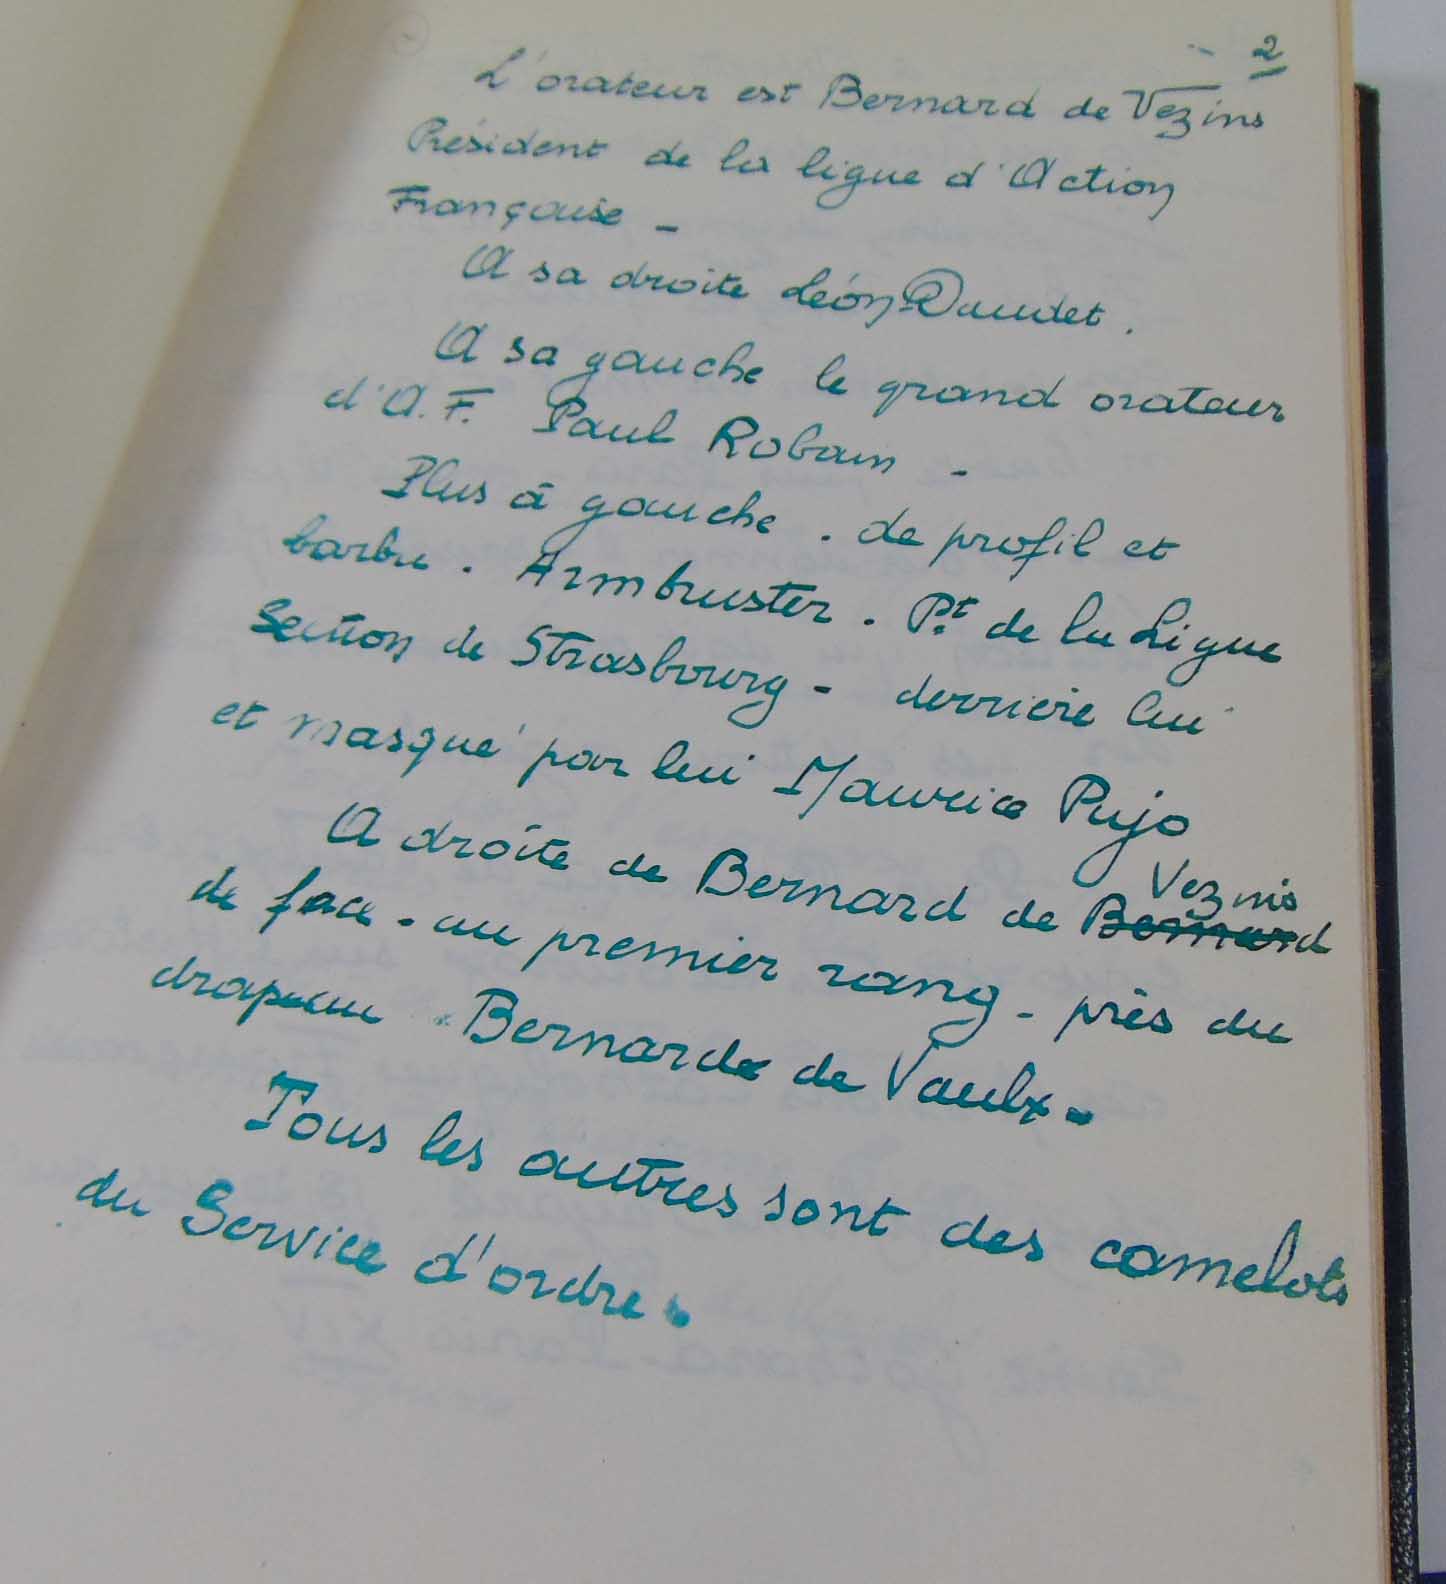 2
L'orateur est Bernard de Vezins
Président de la ligue d'Action
Française -
A sa droite Léon Daudet.
A sa gauche le grand orateur
d'A.F. Paul Robain -
Plus à gauche . de profil et
barbu . Armbruster . Pt de la Ligue
Section de Strasbourg - derrière lui
et masqué par lui Maurice Pujo
A droite de Bernard de Bernard Vezins
de face - au premier rang - près du
drapeau - Bernard de Vaulx -
Tous les autres sont des camelots
du Service d'ordre.